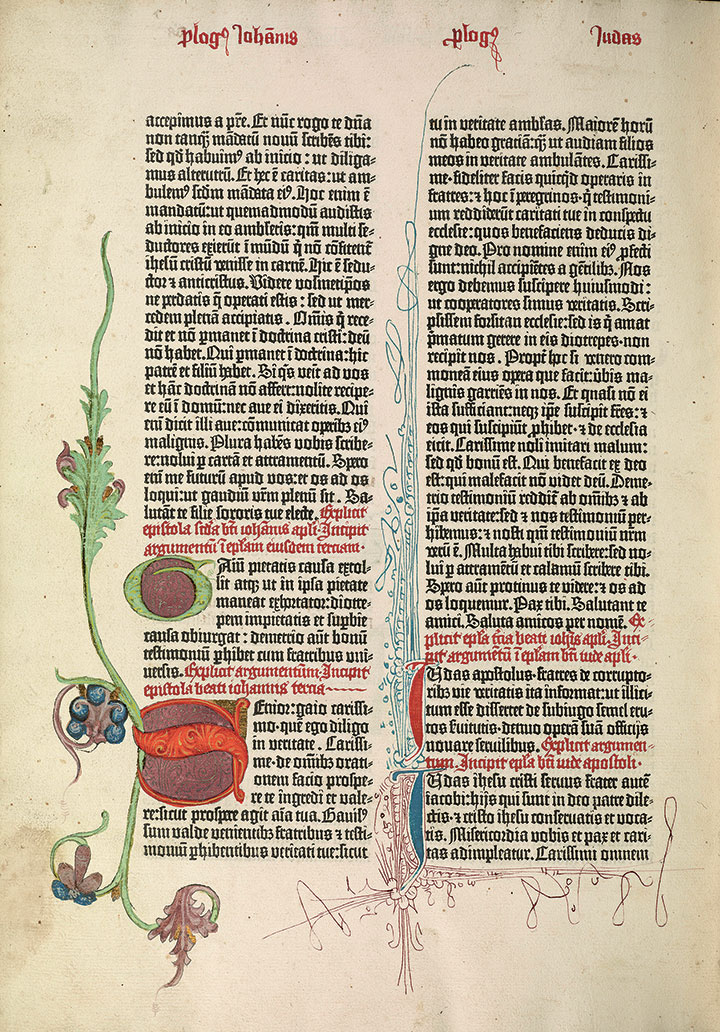 plogꝰ Iohānis
plogꝰ Iudas
accepimus a pr̄e. Et nūc rogo te dn̄a
non tanqꝫ mādatū nouū scribēs tibi:
sed qd̄ habuimꝰ ab inicio: ut diliga-
mus alterutrū. Et hec ē caritas: ut am-
bulemꝰ scdm̄ mādata eiꝰ. Hoc enim ē
mandatū: ut quemadmodū audistis
ab inicio in eo ambletis: qm̄ multi se-
ductores exierūt ī mūdū q̄ nō cōfitent̄
ihesum cristū venisse in carnē. Hic ē sedu-
ctor & anticristus. Videte vosmetip̄os
ne perdatis q̄ operati estis: sed ut mer-
cedem plenā accipiatis. Om̄is q̄ rece-
dit et nō p̄manet ī doctrina cristi: deū
nō habet. Qui p̄manet ī doctrina: hic
patrē et filiū habet. Si q̄s veīt ad vos
et hāc doctrinā nō affert: nolite recipe-
re eū ī domū: nec aue ei dixeritis. Qui
em̄ dicit illi aue: cōmunicat operibꝫ eiꝰ
malignis. Plura habēs vobis scribe-
re: nolui p̄ cartā et attramentū. Spero
em̄ me futurū apud vos: et os ad os
loqui: ut gaudiū vr̄m plenū sit. Sa-
lutāt te filie sororis tue electe. Explicit
epistola scd̄a bt̄i iohānis apl̄i. Incipit
argumentū ī ep̄lam eiusdem terciam.
Gaiū pietatis causa extol-
lit atqꝫ ut in ipsa pietate
maneat exhortator: diotre-
pem impietatis et sup̄bie
causa obiurgat: demetrio aūt bonū
testimoniū p̄hibet cum fratribus vni-
uersis. Explicit argumentum. Incipit
epistola beati iohannis tercia
Senior: gaio carissi-
mo. quē ego diligo
in veritate. Carissi-
me. de om̄ibꝫ orati-
onem facio prospe-
re te īngredi et vale-
re: sicut prospere agit aīa tua. Gauisꝰ
sum valde venientibꝫ fratribus & testi-
monium p̄hibentibus veritati tue: sicut
tu in veritate amb̄las. Maiorē horū
nō habeo gratiā: qꝫ ut audiam filios
meos in veritate ambulātes. Carissi-
me. fideliter facis quicqd̄ operaris in
fratres: & hoc ī peregrinos. q̄ testimoni-
um reddiderūt caritati tue in conspectu
ecclesie: quos benefaciens deducis di-
gne deo. Pro nomine enim eiꝰ p̄fecti
sunt: nichil accipiētes a gētilibꝫ. Nos
ergo debemus suscipere huiusmodi:
ut cooperatores simus veritatis. Scri-
psissem forsitan ecclesie: sed is q̄ amat
p̄matum gerere in eis diotrepes. non
recipit nos. Propt̄ hoc si venero com-
moneā eius opera que facit: v̄bis ma-
lignis garriēs in nos. Et quasi nō ei
ista sufficiant: neqꝫ ip̄e suscipit fr̄es: &
eos qui suscipiūt p̄hibet. & de ecclesia
eicit. Carissime noli imitari malum:
sed qd̄ bonū est. Qui benefacit ex deo
est: qui malefacit nō videt deū. Deme-
trio testimoniū reddit̄ ab om̄ibꝫ & ab
ip̄a veritate: sed & nos testimoniū per-
hibemus: & nosti qm̄ testimoniū nr̄m
verū ē. Multa habui tibi scribere: sed no-
lui p̄ attramētū et calamū scribere tibi.
Spero aūt protinus te videre: & os ad
os loquemur. Pax tibi. Salutant te
amici. Saluta amicos per nomē. Ex-
plicit epl̄a t̄cia beati iohīs apl̄i. Inci-
pit argumētū ī ep̄lam bt̄i iude apl̄i.
Iudas apostolus. fratres de corrupto-
ribꝫ vie veritatis ita informat: ut illici-
tum esse disseret de subiugo semel eruc-
tos s̄uitutis. denuo operā suā officijs
nouare seruilibus. Explicit argumen-
tum. Incipit epl̄a bt̄i iude apostoli.
Iudas ihesu cristi seruus frater autē
iacobi: hijs qui sunt in deo patre dile-
ctis. & cristo ihesu conseruatis et voca-
tis. Misericordia vobis et pax et cari-
tas adimpleatur. Carissimi omnem